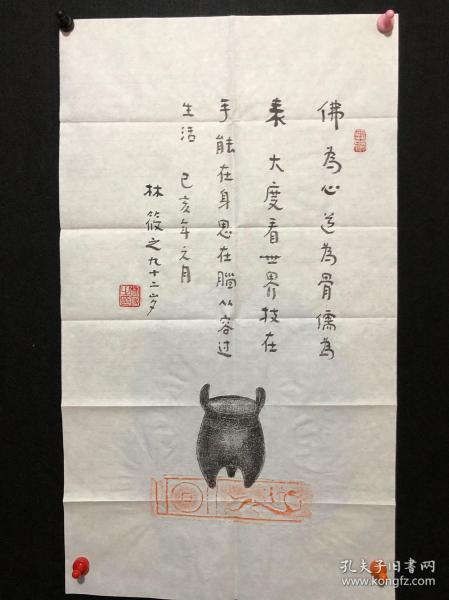 佛為心道為骨儒為
表大度看世界技在
手能在身思在腦从容过
生活 己亥年元月
林筱之九十二岁
孔夫子旧书网
www.kongfz.com